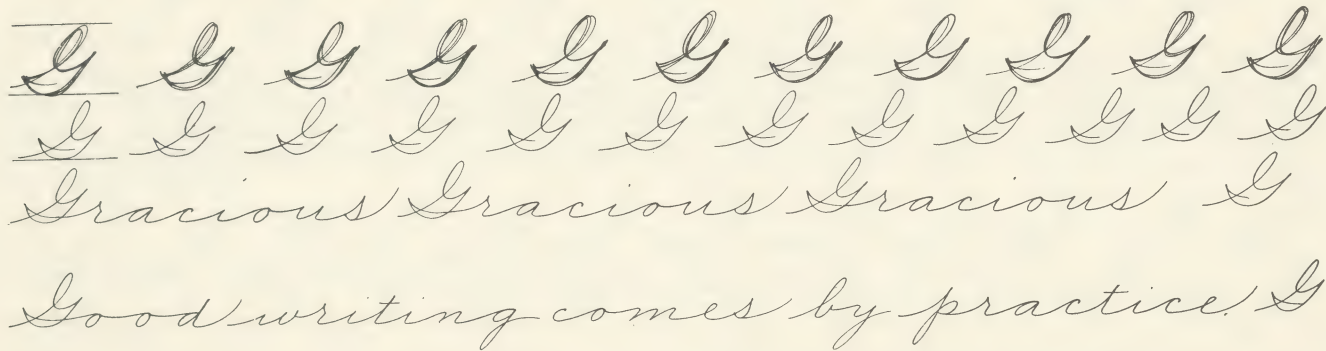 G G G G G G G G G G G
G G G G G G G G G G G G
Gracious Gracious Gracious G
Good writing comes by practice. G